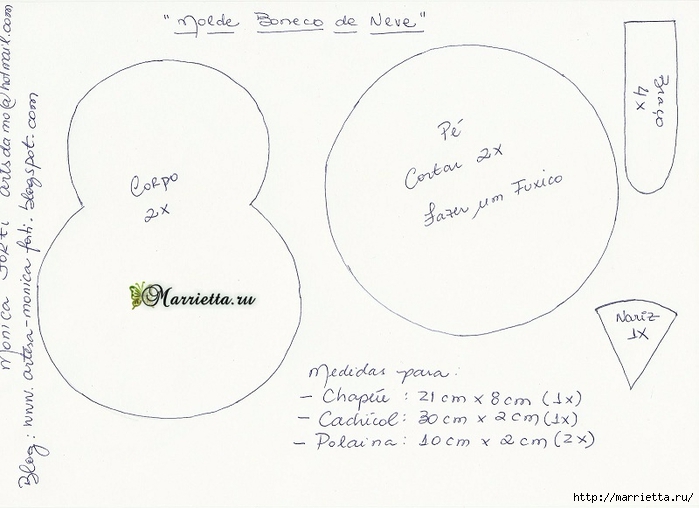 "Molde Boneco de Neve"
Corpo
2x
Pé
Cortar 2x
Fazer um Fuxico
Braço
4x
Nariz
1x
Marrietta.ru
Medidas para:
- Chapéu : 21 cm x 8 cm (1x)
- Cachicol: 30 cm x 2 cm (1x)
- Polaina: 10 cm x 2 cm (2x)
Monica Forti artsdamo@hotmail.com
Blog: www.artesa-monica forti.blogspot.com
http://marrietta.ru/